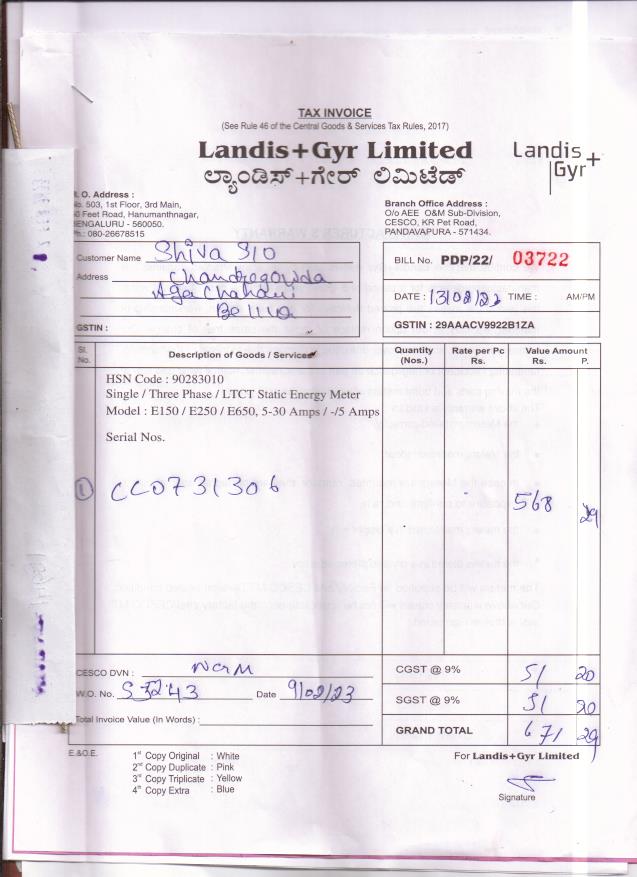 TAX INVOICE
(See Rule 46 of the Central Goods & Services Tax Rules, 2017)
Landis+Gyr Limited
ಲ್ಯಾಂಡಿಸ್+ಗೇರ್ ಲಿಮಿಟೆಡ್
Landis+
Gyr
. O. Address :
503, 1st Floor, 3rd Main,
Feet Road, Hanumanthnagar,
BENGALURU - 560050.
Ph.: 080-26678515
Branch Office Address :
O/o AEE O&M Sub-Division,
CESCO, KR Pet Road,
PANDAVAPURA - 571434.
Customer Name Shiva S/O
Address Chandregowda
GSTIN :
BILL No. PDP/22/ 03722
DATE : 13/02/ TIME : AM/PM
GSTIN : 29AAACV9922B1ZA
Sl. No. Description of Goods / Services Quantity (Nos.) Rate per Pc Rs. Value Amount Rs. P.
HSN Code : 90283010
Single / Three Phase / LTCT Static Energy Meter
Model : E150 / E250 / E650, 5-30 Amps / -/5 Amps
Serial Nos.
1 CC0731306 568 29
CESCO DVN :
W.O. No. S-3243 Date 9/02/23
Total Invoice Value (In Words) :
CGST @ 9% 51 20
SGST @ 9% 51 20
GRAND TOTAL 671 29
E.&O.E.
1st Copy Original : White
2nd Copy Duplicate : Pink
3rd Copy Triplicate : Yellow
4th Copy Extra : Blue
For Landis+Gyr Limited
Signature